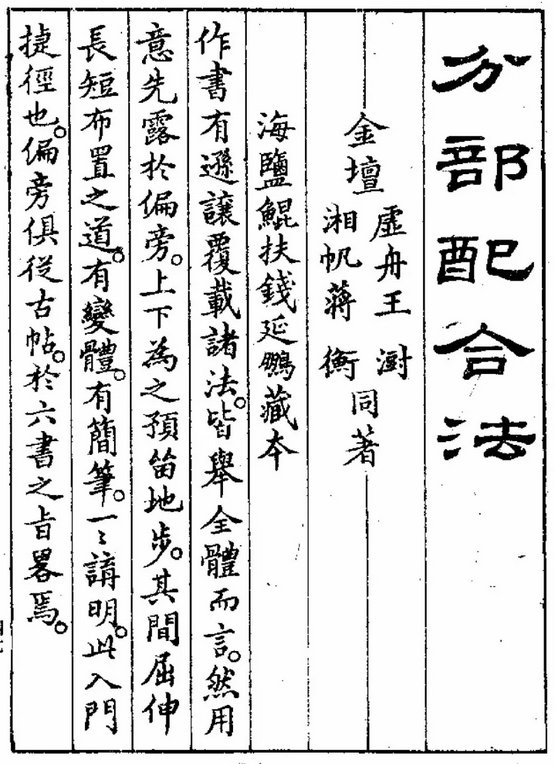 分部配合法
金壇
虛舟王澍
湘帆蔣衡
同著
海鹽鯤扶錢延鵬藏夲
作書有遜讓覆載諸法。皆舉全體而言。然用
意先露於偏旁。上下為之預笛地步。其間屈伸
長短布置之道。有變體。有簡筆。一〻講明。此入門
捷徑也。偏旁俱從古帖。於六書之旨畧焉。